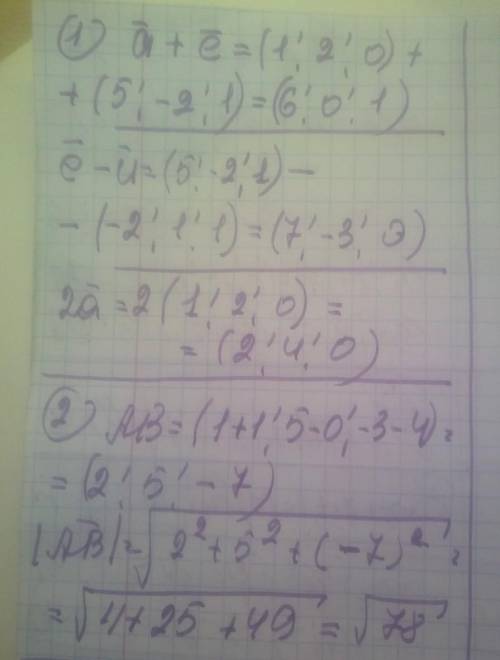 ① ā + ē = (1; 2; 0) +
+ (5; -2; 1) = (6; 0; 1)
ē - ū = (5; -2; 1) -
- (-2; 1; 1) = (7; -3; 0)
2ā = 2 (1; 2; 0) =
= (2; 4; 0)
② AB = (1+1; 5-0; -3-4) =
= (2; 5; -7)
|AB| = √2² + 5² + (-7)² =
= √4 + 25 + 49 = √78